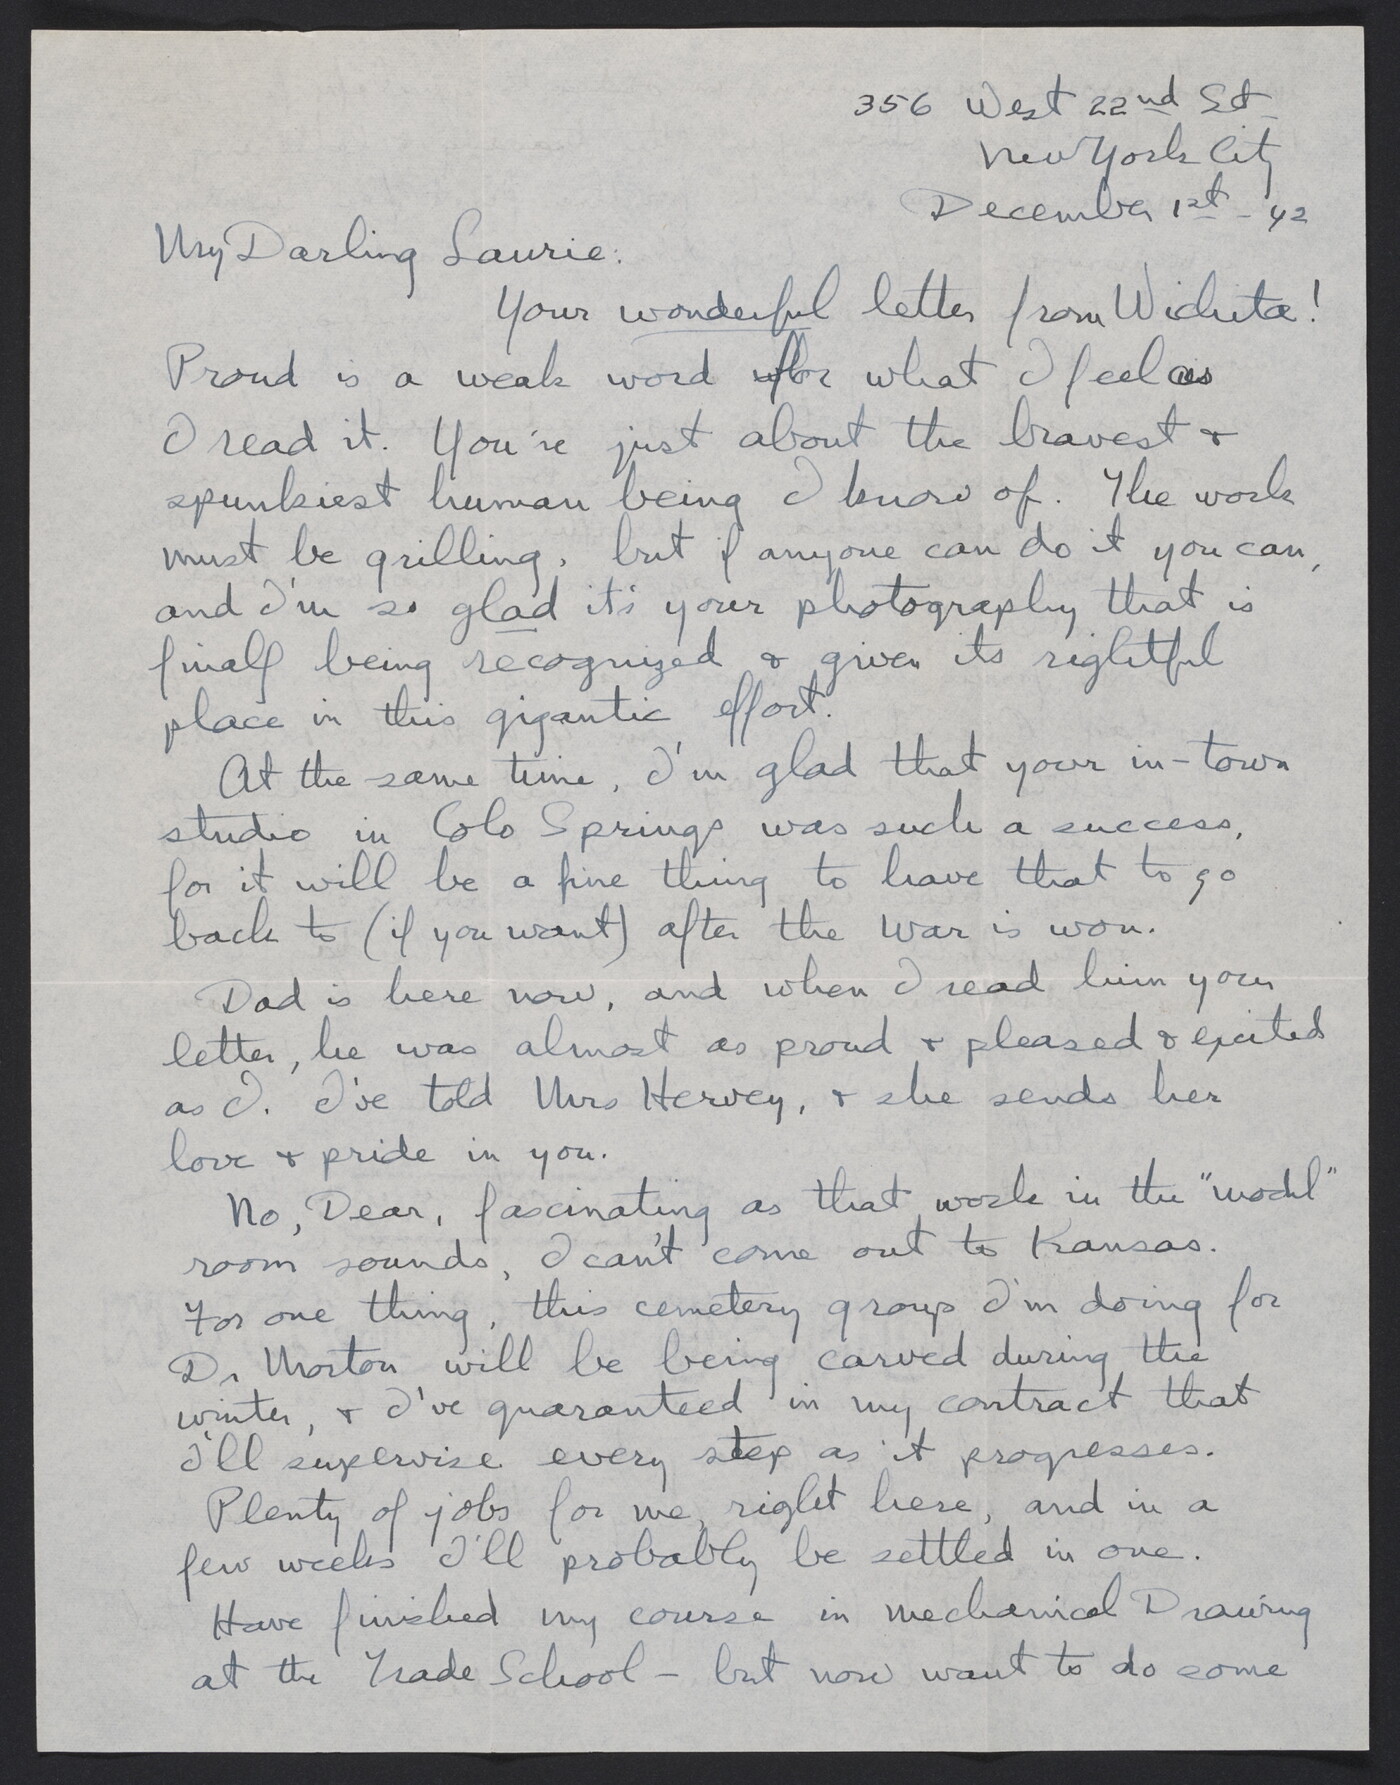 356 West 22nd St
New York City
December 1st - 42
My Darling Laurie:
Your wonderful letter from Wichita!
Proud is a weak word for what I feel as
I read it. You're just about the bravest &
spunkiest human being I know of. The work
must be grilling, but if anyone can do it you can,
and I'm so glad it's your photography that is
finally being recognized & given its rightful
place in this gigantic effort.
At the same time, I'm glad that your in-town
studio in Colo Springs was such a success,
for it will be a fine thing to have that to go
back to (if you want) after the war is won.
Dad is here now, and when I read him your
letter, he was almost as proud & pleased & excited
as I. I've told Mrs Hervey, & she sends her
love & pride in you.
No, Dear, fascinating as that work in the "model"
room sounds, I can't come out to Kansas.
For one thing, this cemetery group I'm doing for
Dr Morton will be being carved during the
winter, & I've guaranteed in my contract that
I'll supervise every step as it progresses.
Plenty of jobs for me, right here, and in a
few weeks I'll probably be settled in one.
Have finished my course in mechanical Drawing
at the Trade School - but now want to do some